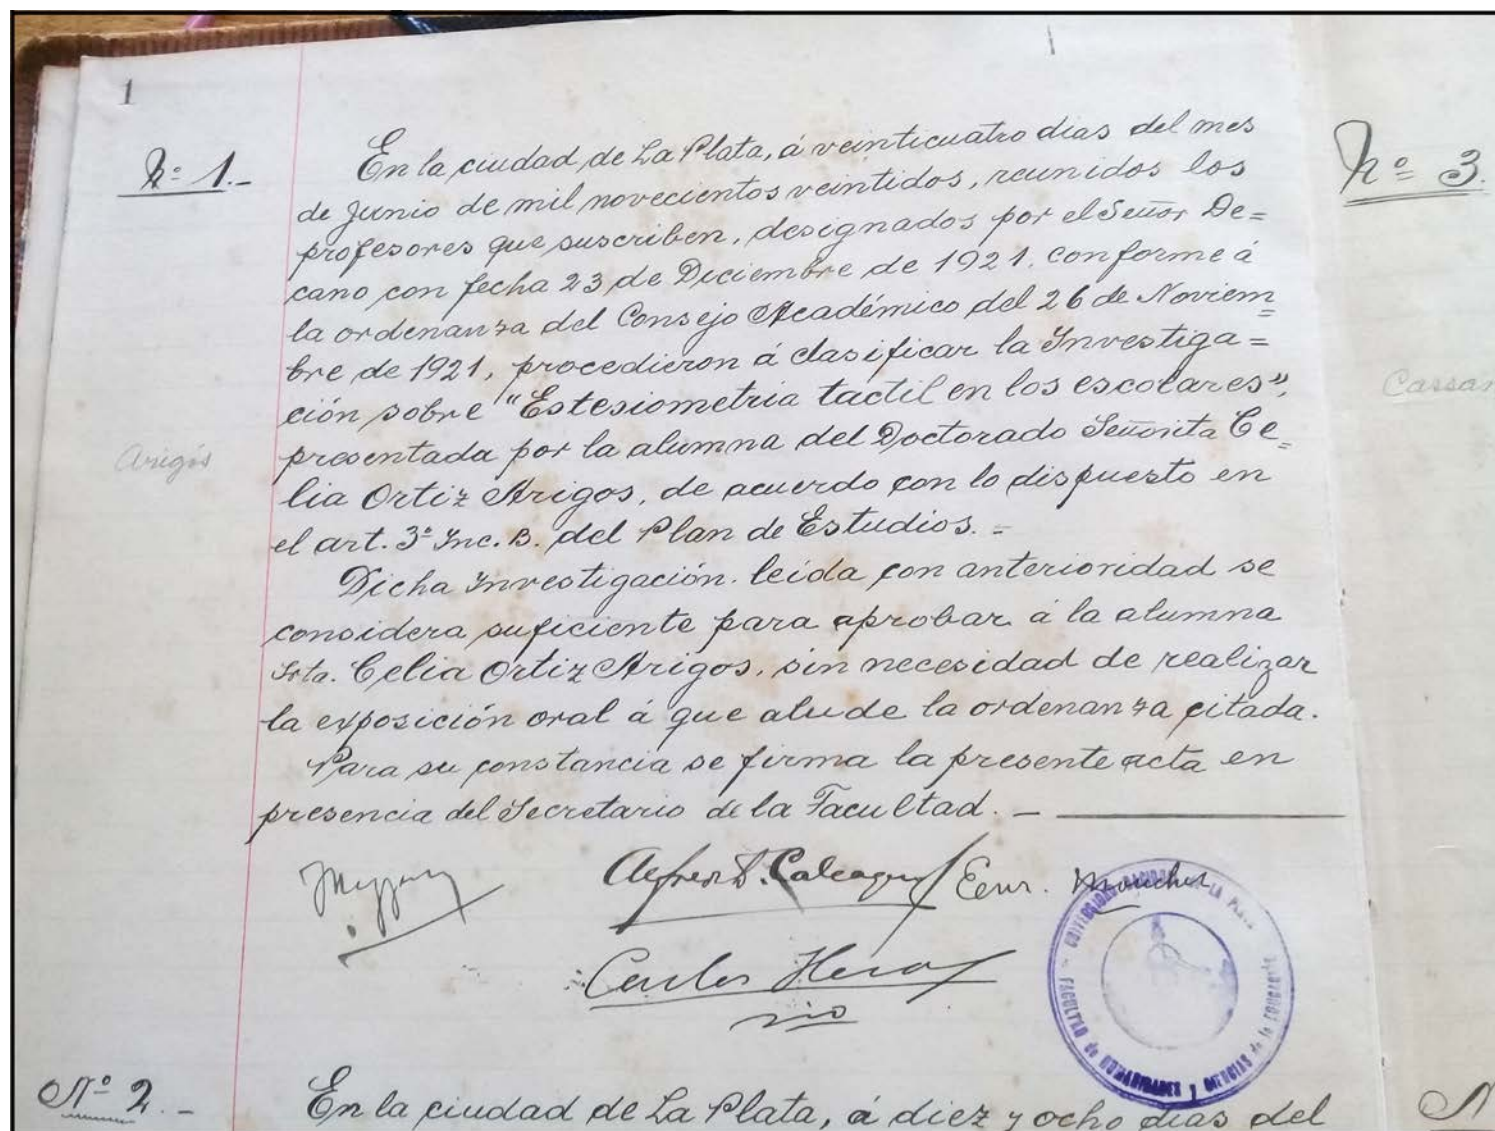 1
1
Nº 1.-
En la ciudad de La Plata, á veinticuatro dias del mes
de Junio de mil novecientos veintidos, reunidos los
profesores que suscriben, designados por el Señor De=
cano con fecha 23 de Diciembre de 1921, conforme á
la ordenanza del Consejo Académico del 26 de Noviem=
bre de 1921, procedieron á clasificar la Investiga=
ción sobre "Estesiometria tactil en los escolares",
presentada por la alumna del Doctorado Señorita Ce=
lia Ortiz Arigos, de acuerdo con lo dispuesto en
el art. 3º Inc. B. del Plan de Estudios. =
Arigós
Dicha Investigación leida con anterioridad se
considera suficiente para aprobar á la alumna
Srta. Celia Ortiz Arigos, sin necesidad de realizar
la exposición oral á que alude la ordenanza citada.
Para su constancia se firma la presente acta en
presencia del Secretario de la Facultad. -
Alfredo D. Calcagno
Enr. Mouchet
Carlos Heras
srio
UNIVERSIDAD NACIONAL DE LA PLATA
FACULTAD de HUMANIDADES Y CIENCIAS de la EDUCACIÓN
Nº 2.-
En la ciudad de La Plata, á diez y ocho dias del
Nº 3.